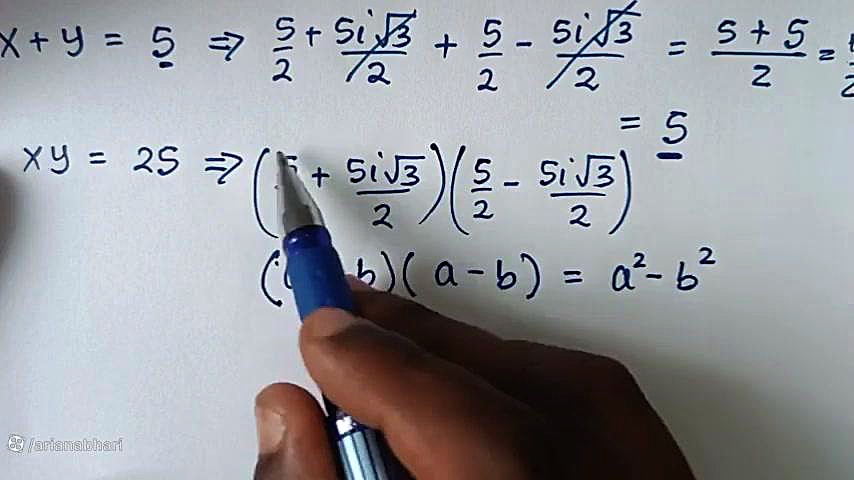 x + y = 5 ⇒ 5/2 + 5i√3/2 + 5/2 - 5i√3/2 = 5 + 5/2 =
= 5
xy = 25 ⇒ (5 + 5i√3/2)(5/2 - 5i√3/2)
( b)(a - b) = a² - b²
/arianabhari